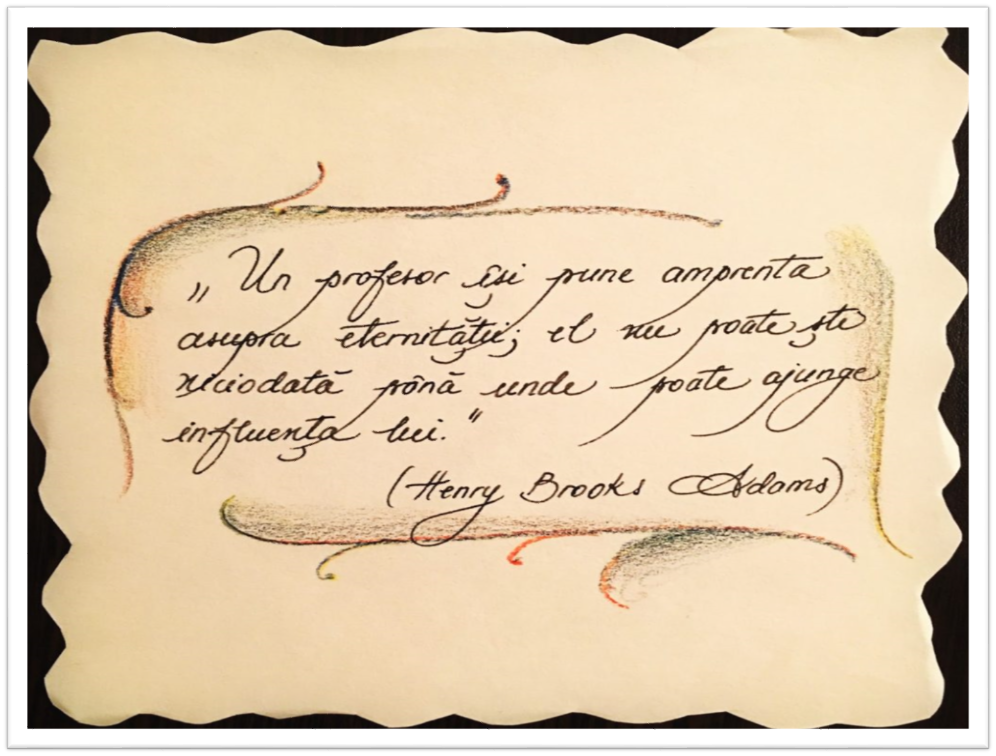 „Un profesor își pune amprenta
asupra eternității; el nu poate ști
niciodată până unde poate ajunge
influența lui."
(Henry Brooks Adams)